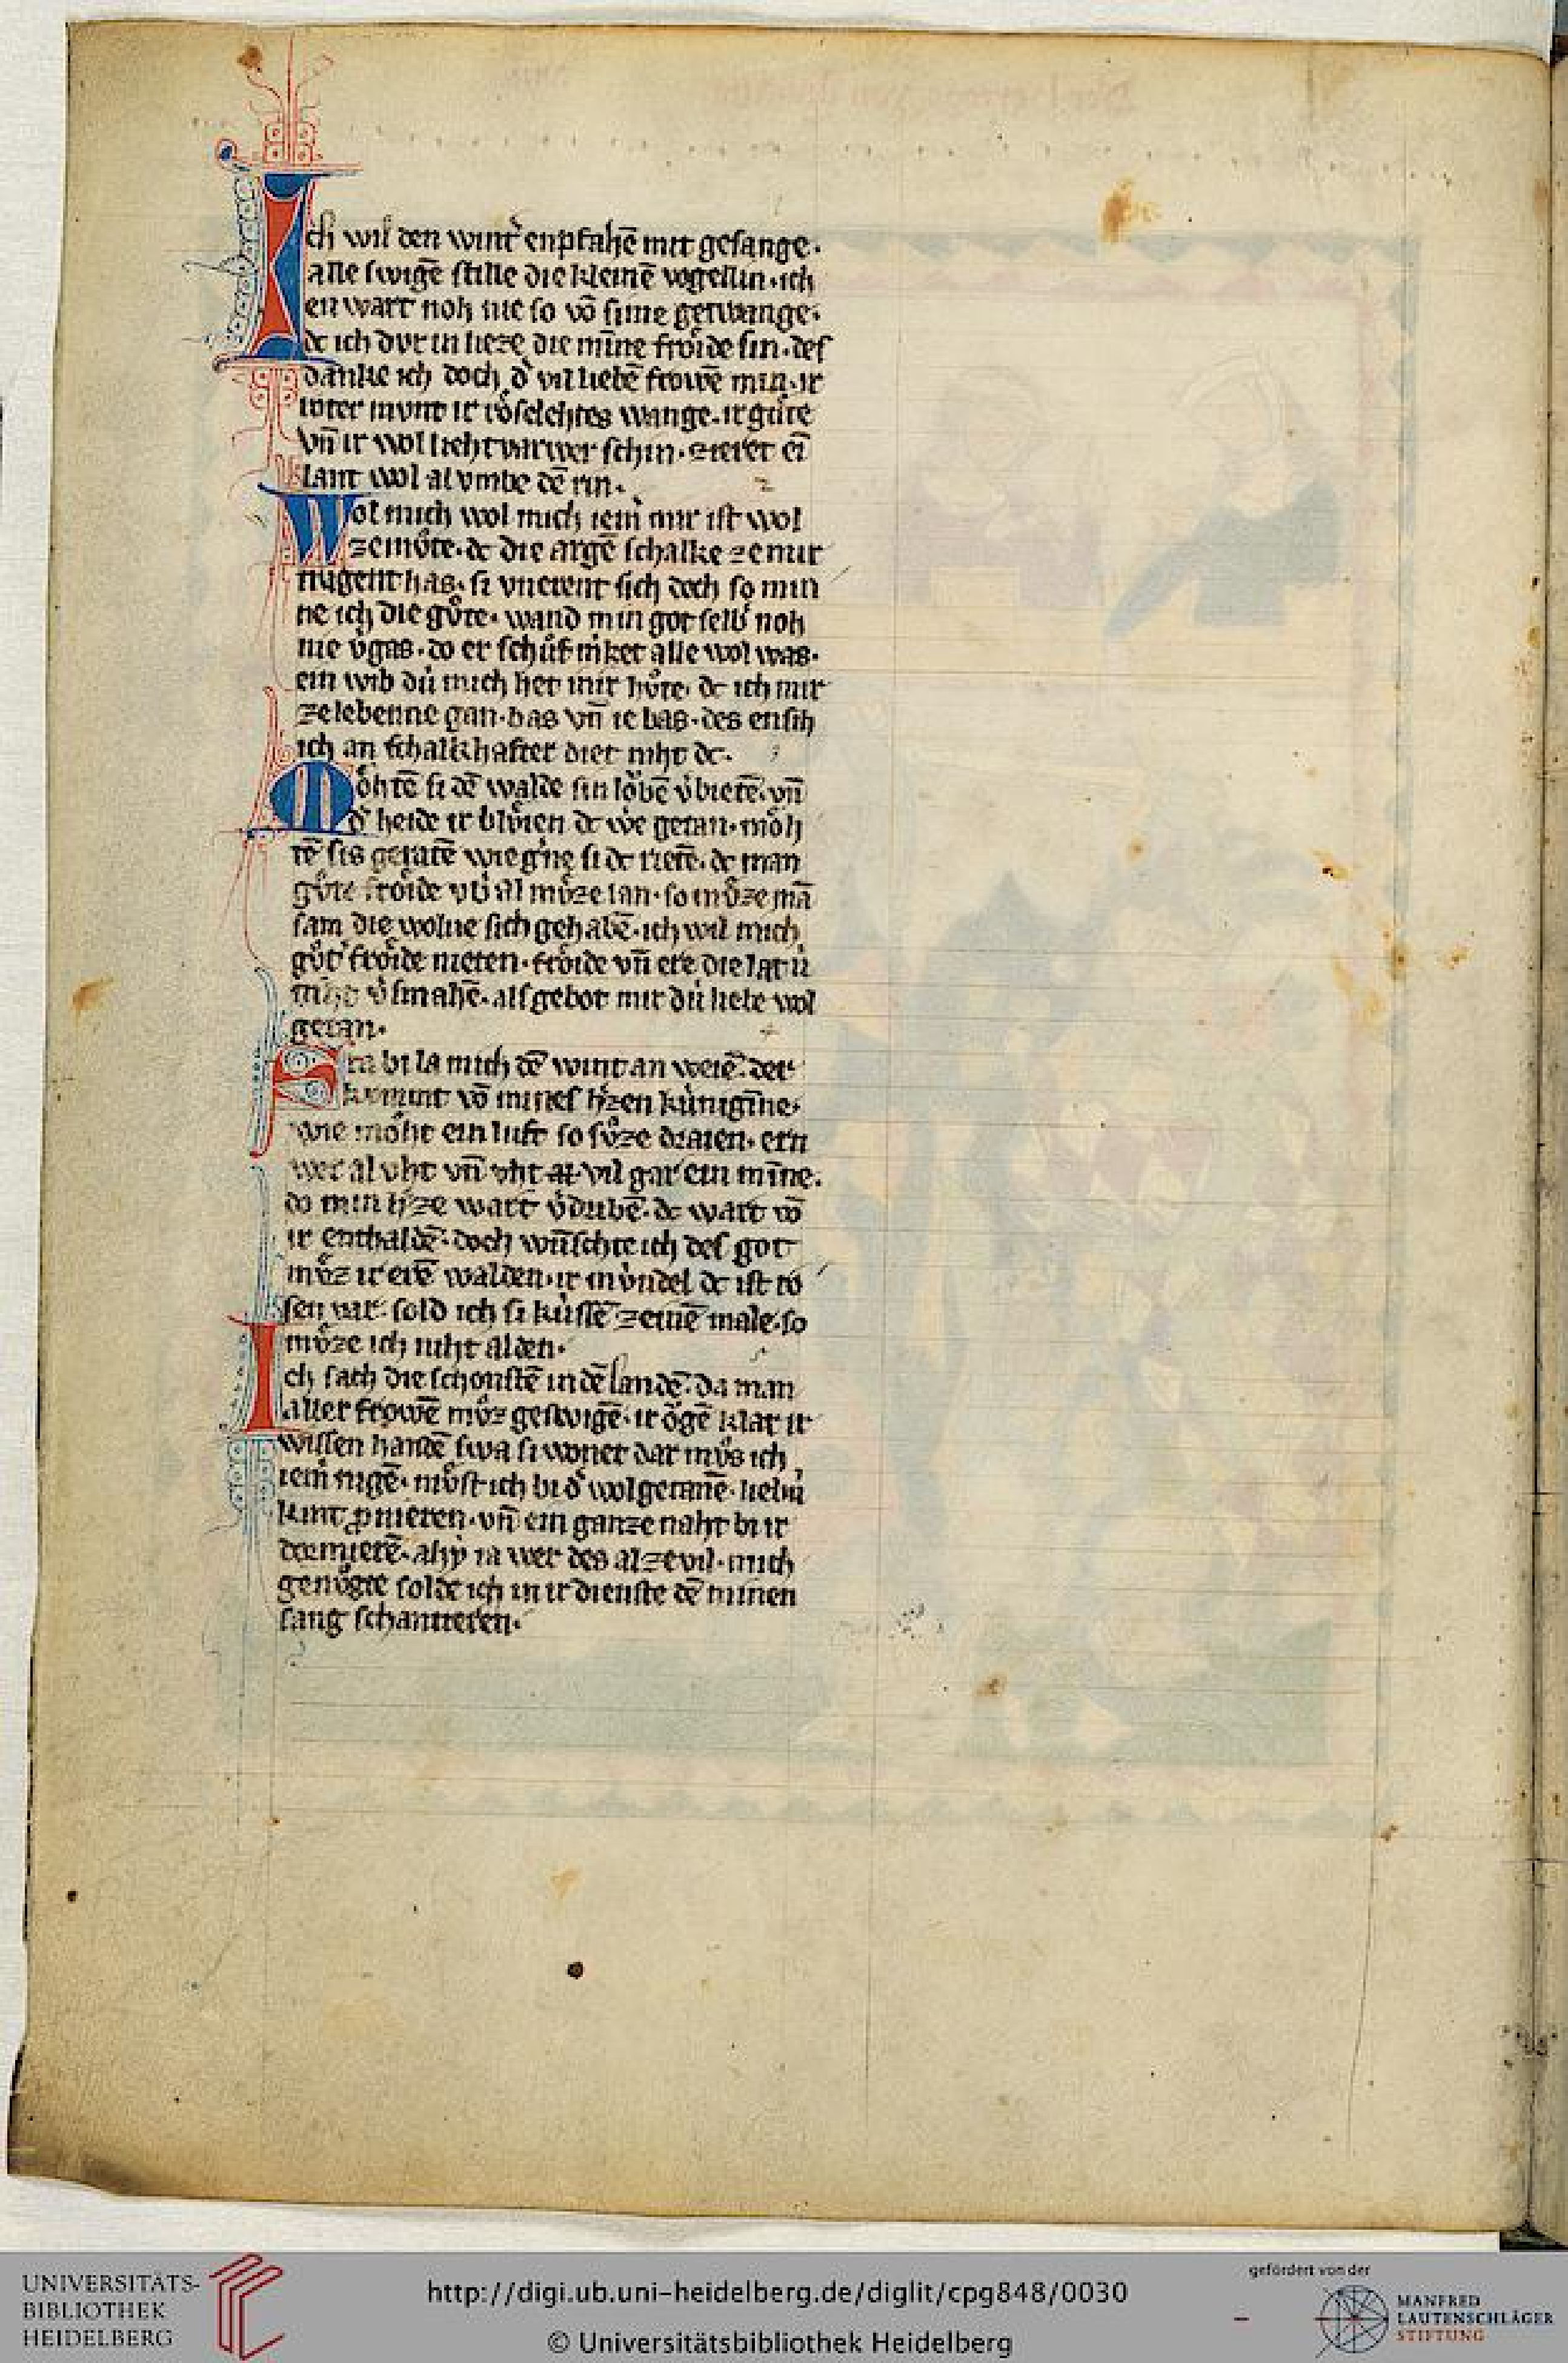 Ich wil den wint͛ enpfahē mit gesange.
alle swigē stille die kleinē vogellin. ich
en wart noh nie so vō sime getwange.
dc ich dvr in lieze die mīne froͤide sin. des
danke ich doch d͛ vil liebē frowē min. ir
roter mvnt ir roͤselehtes wange. ir guͤte
vn̄ ir wol lieht varwer schin. zieret eī
lant wol al vmbe dē rin.
Wol mich wol mich iem͛ mir ist wol
ze mvͦte. dc die argē schalke ze mir
nugent has. si vnerent sich doch so min
ne ich die gvͦte. wand min got selb͛ noh
nie v͛gas. do er schuͦf m͛ket alle wol was.
ein wib duͥ mich het in ir hvͦte. dc ich mir
ze lebenne gan. bas vn̄ ie bas. des ensih
ich an schalkhafter diet niht dc.
Moͤhtē si dē walde sin loͮbē v͛bietē. vn̄
d͛ heide ir blvͤien dc we getan. moͤh
tē sis geratē wie g͛ne si dc rietē. dc man
gvͦte froͤide vb͛al mvͤze lan. so mvͤze mā
sam die wolue sich gehabē. ich wil mich
gvͦt͛ froͤide nieten. froͤide vn̄ ere die lat uͥ
niht v͛smahē. als gebot mir duͥ liebe wol
getan.
Sta bi la mich dē wint an weiē. der
kvmint vō mines h͛zen kuͥnigīne.
wie moͤht ein luft so svͤze draien. ern
wer al vht vn̄ vht vil gar ein mīne.
do min h͛ze wart v͛dribē. dc wart vō
ir enthaldē. doch wuͥschte ich des got
mvͤz ir erē walden. ir mvͥndel dc ist ro
sen var. sold ich si kuͥssē ze eīnē male. so
mvͤze ich niht alden.
Ich sach die schonstē in dē landē. da man
aller frowē mvͦz geswigē. ir oͮgē klar ir
wissen handē swa si wonet dar mvͦs ich
iem͛ nigē. mvͤst ich bi d͛ wolgetanē. liebuͥ
kint ꝓmieren. vn̄ ein ganze naht bi ir
dormierē. ahy ia wer des al ze vil. mich
genvͦgte solde ich in ir dienste dē minen
sang schantieren.
UNIVERSITÄTS-
BIBLIOTHEK
HEIDELBERG
http://digi.ub.uni-heidelberg.de/diglit/cpg848/0030
© Universitätsbibliothek Heidelberg
gefördert von der
MANFRED
LAUTENSCHLÄGER
STIFTUNG